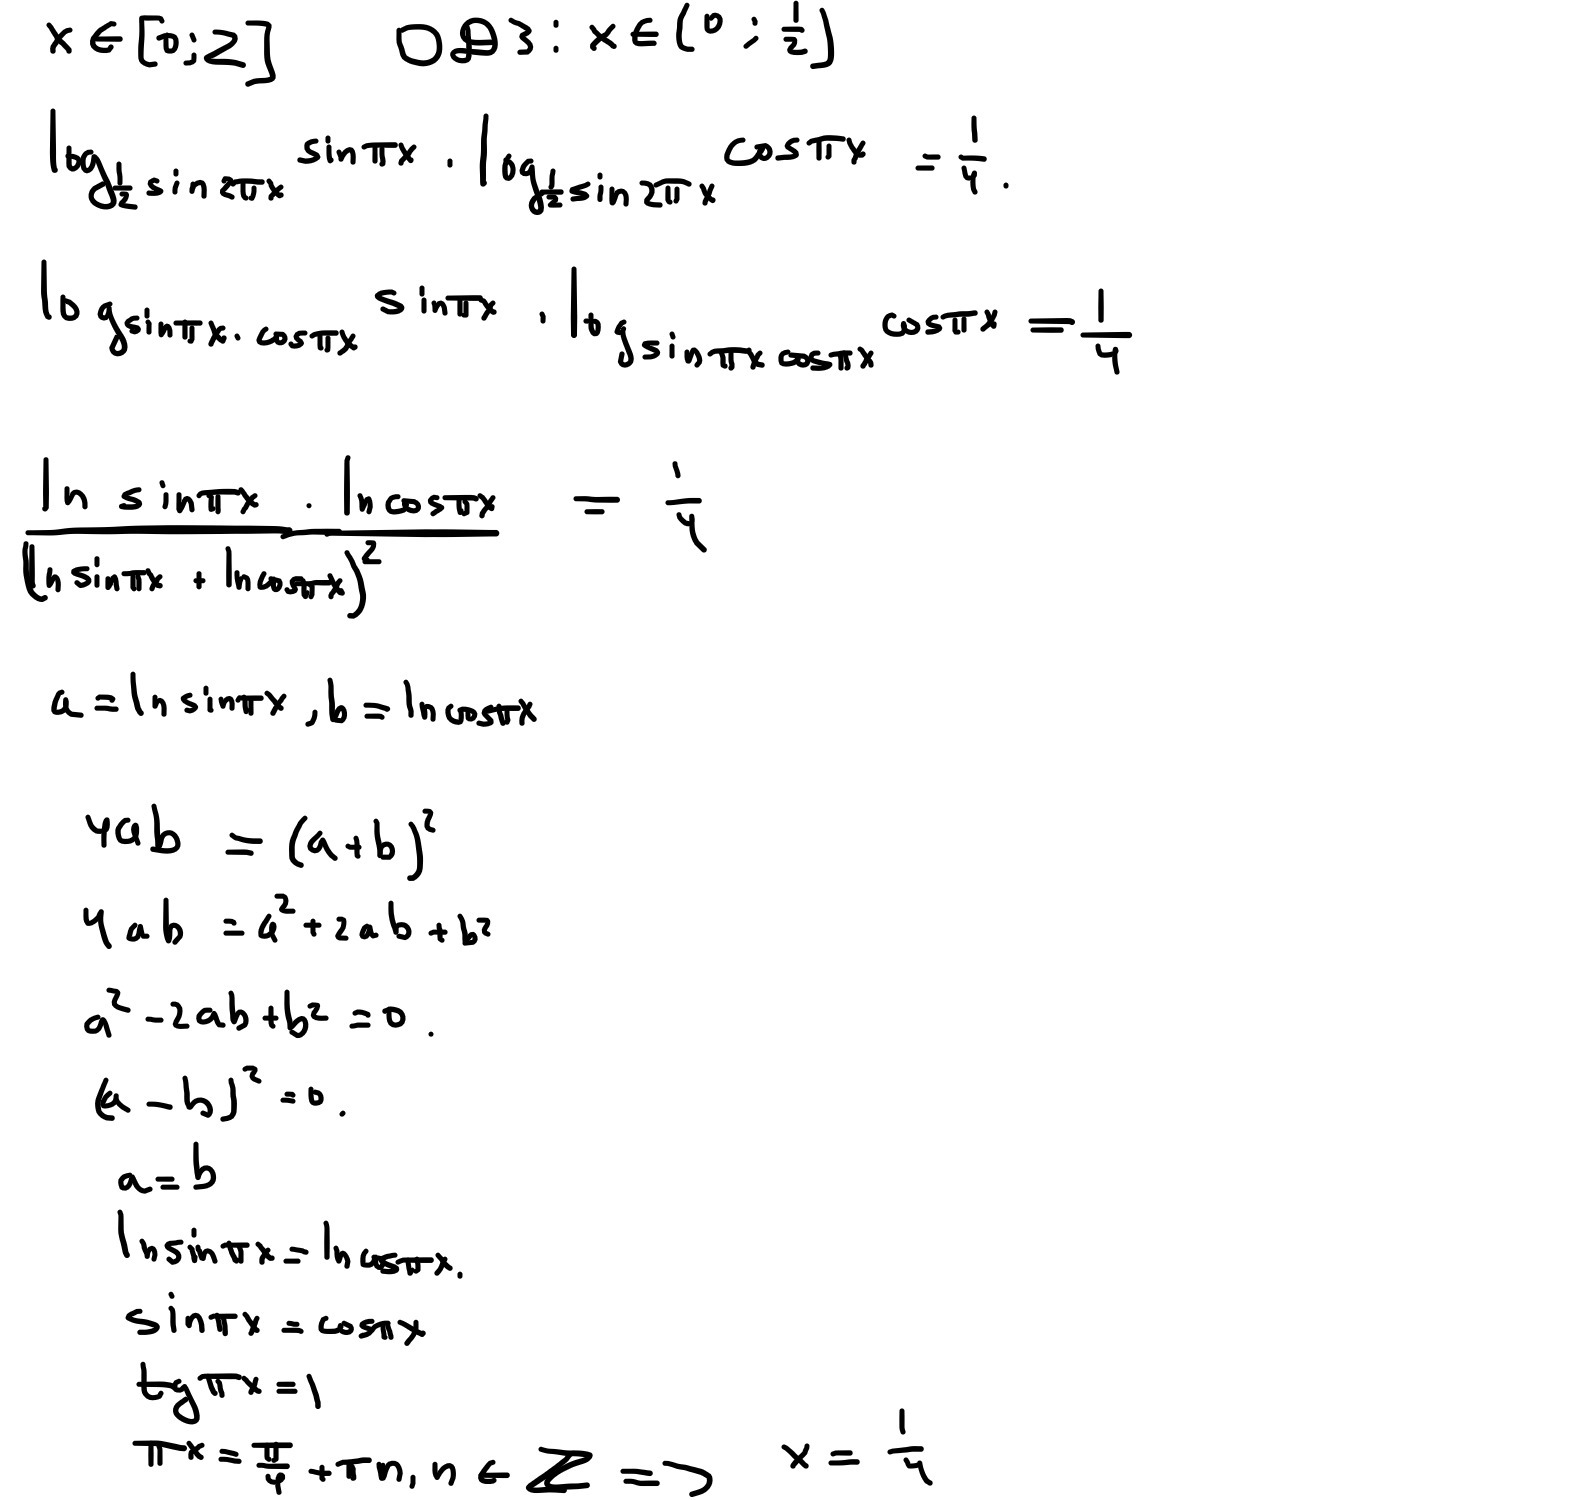 x ∈ [0; 2]   ОДЗ: x ∈ (0 ; 1/2)
log_{1/2 sin 2πx} sin πx · log_{1/2 sin 2πx} cos πx = 1/4.
log_{sin πx · cos πx} sin πx · log_{sin πx cos πx} cos πx = 1/4
(ln sin πx · ln cos πx) / (ln sin πx + ln cos πx)² = 1/4
a = ln sin πx, b = ln cos πx
4ab = (a+b)²
4ab = a² + 2ab + b²
a² - 2ab + b² = 0.
(a - b)² = 0.
a = b
ln sin πx = ln cos πx.
sin πx = cos πx
tg πx = 1
πx = π/4 + πn, n ∈ Z => x = 1/4